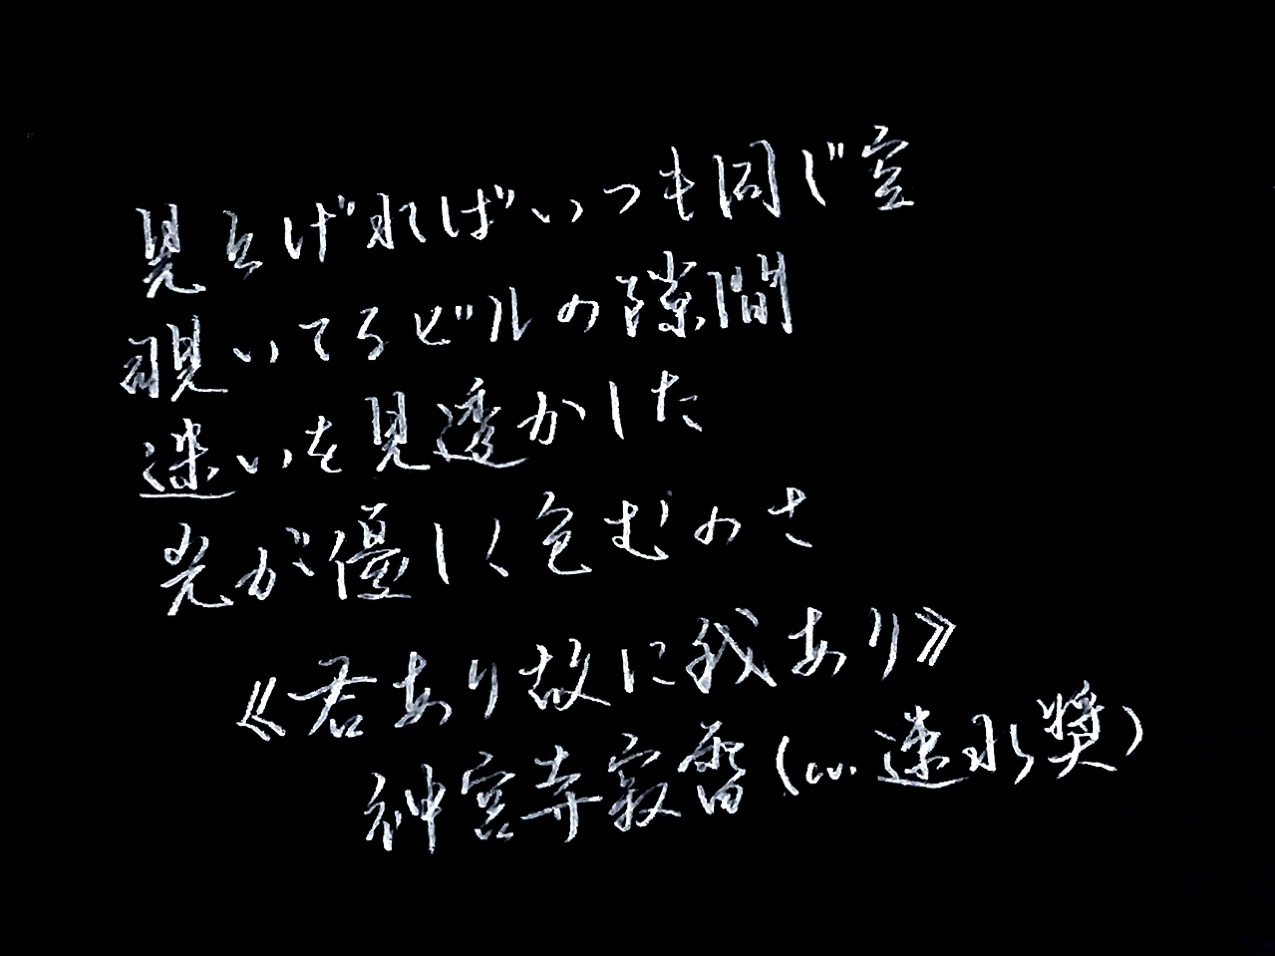 見上げればいつも同じ空
覗いてるビルの隙間
迷いを見透かした
光が優しく包むのさ
《君あり故に我あり》
神宮寺寂雷(cv.速水奨)